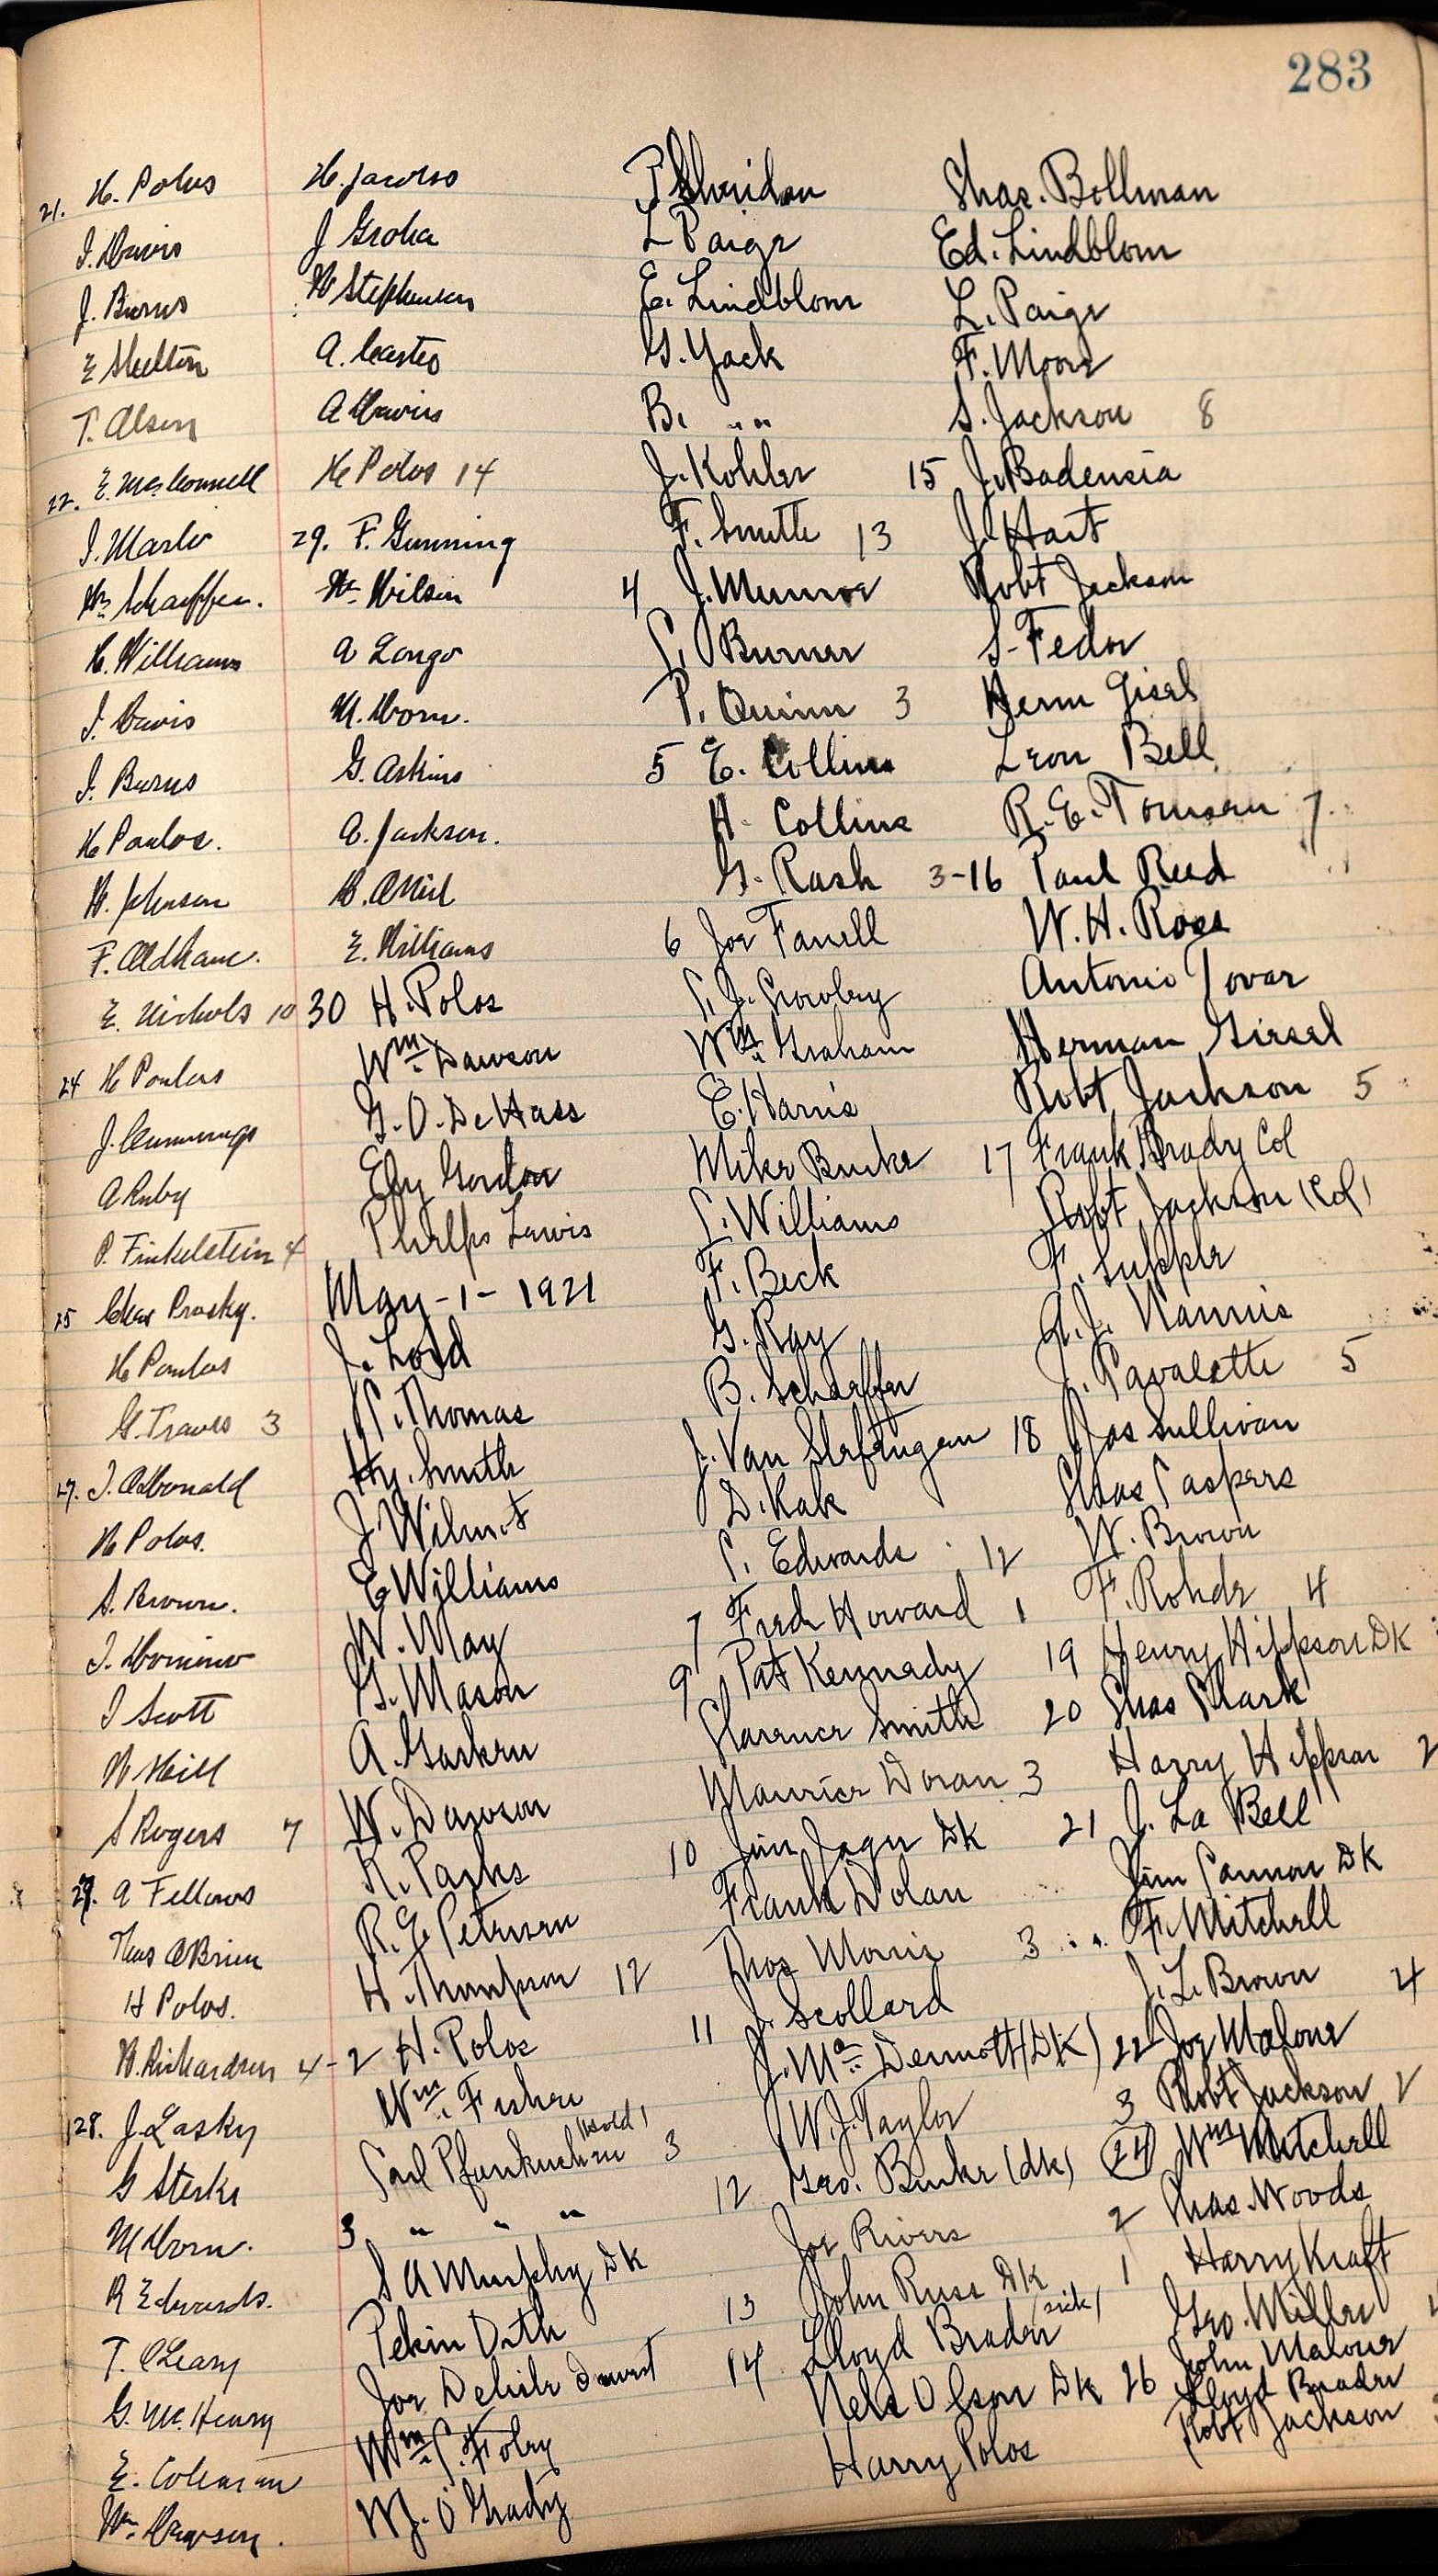 283
21. H. Polus
I. Davis
J. Burns
E Skelton
T. Olsen
22. E. McConnell
I. Marlo
Wm Schaeffer.
H. Williams
I. Davis
I. Burns
H Poulos.
H. Johnson
F. Oldham.
E. Nichols 10
24 H Poulus
J. Cummings
A Ruby
P. Finkelstein 4
25 Chas Prosky.
H Poulus
G. Traves 3
27. I. O'Donald
H Polos.
S. Brown.
I. Domino
I Scott
W Hill
S Rogers 7
29. A Fellows
Thos O'Brien
H Polos.
W. Richardson 4
28. J. Lasky
G Sterks
M Dorn.
R Edwards.
T. O'Leary
G. McHenry
E. Coleman
Wm. Dawson.
H. Jacobs
J Groha
W Stephenson
A. Castro
A Davis
H Polos 14
29. F. Gunning
Wm. Wilson
A Longo
M. Dorn.
G. Askins
A. Jackson.
H. O'Neil
E. Williams
30 H. Polos
Wm. Dawson
G. O. De Hass
Ely Gordon
Phelps Lewis
May-1-1921
J. Lord
C. Thomas
Hy. Smith
J Wilmot
E Williams
W. May
G. Mason
A. Gaskin
W. Dawson
R. Parks
R. E. Petersen
H. Thompson 12
2 H. Polos
Wm. Fisher
Carl Pfankuchen 3
3 " " "
S A Murphy DK
Pekin Dith
Joe Delisle
Wm C. Foley
W. J. O'Grady
P Sheridan
L Paige
E. Lindblom
G. Yack
B. " "
J. Kohler
F. Smith 13
4 J. Munroe
C. Burner
P. Quinn 3
5 E. Collins
H. Collins
G. Rash
6 Joe Farrell
C. J. Crowley
Wm. Graham
E. Harris
Mike Burke
C. Williams
F. Beck
G. Ray
B. Schaeffer
J. Van Sleftugen
D. Kak
C. Edwards 12
7 Fred Howard 1
9 Pat Kennedy
Clarence Smith
Maurice Doran 3
10 Jim Jager DK
Frank Dolan
Thos Morris 3
11 J. Scollard
J. Mc. Dermott (DK)
W. J. Taylor
12 Geo. Burke (dk)
Joe Rivers
13 John Russ DK
14 Lloyd Brader (sick)
Nels Olson DK
Harry Polos
Chas. Bollman
Ed. Lindblom
L. Paige
F. Moore
S. Jackson 8
15 J. Badensia
J. Hart
Robt Jackson
S. Fedor
Herm Gisel
Leon Bell
R. E. Tomsen 7
3-16 Paul Reed
W. H. Ross
Antonio Tovar
Herman Girsel
Robt Jackson 5
17 Frank Brady Col
Robt Jackson (Col)
F. Supple
A. J. Nannis
J. Pavalette 5
18 Jas Sullivan
Chas Caspers
W. Brown
F. Rohde 4
19 Henry Hippson DK
20 Chas Clark
Harry Hippson 2
21 J. La Bell
Jim Connor DK
F. Mitchell
J. L. Brown 4
22 Joe Malone
3 Robt Jackson 2
24 Wm Mitchell
2 Chas. Woods
1 Harry Kraft
Geo. Miller
26 John Malone
Lloyd Brader
Robt Jackson